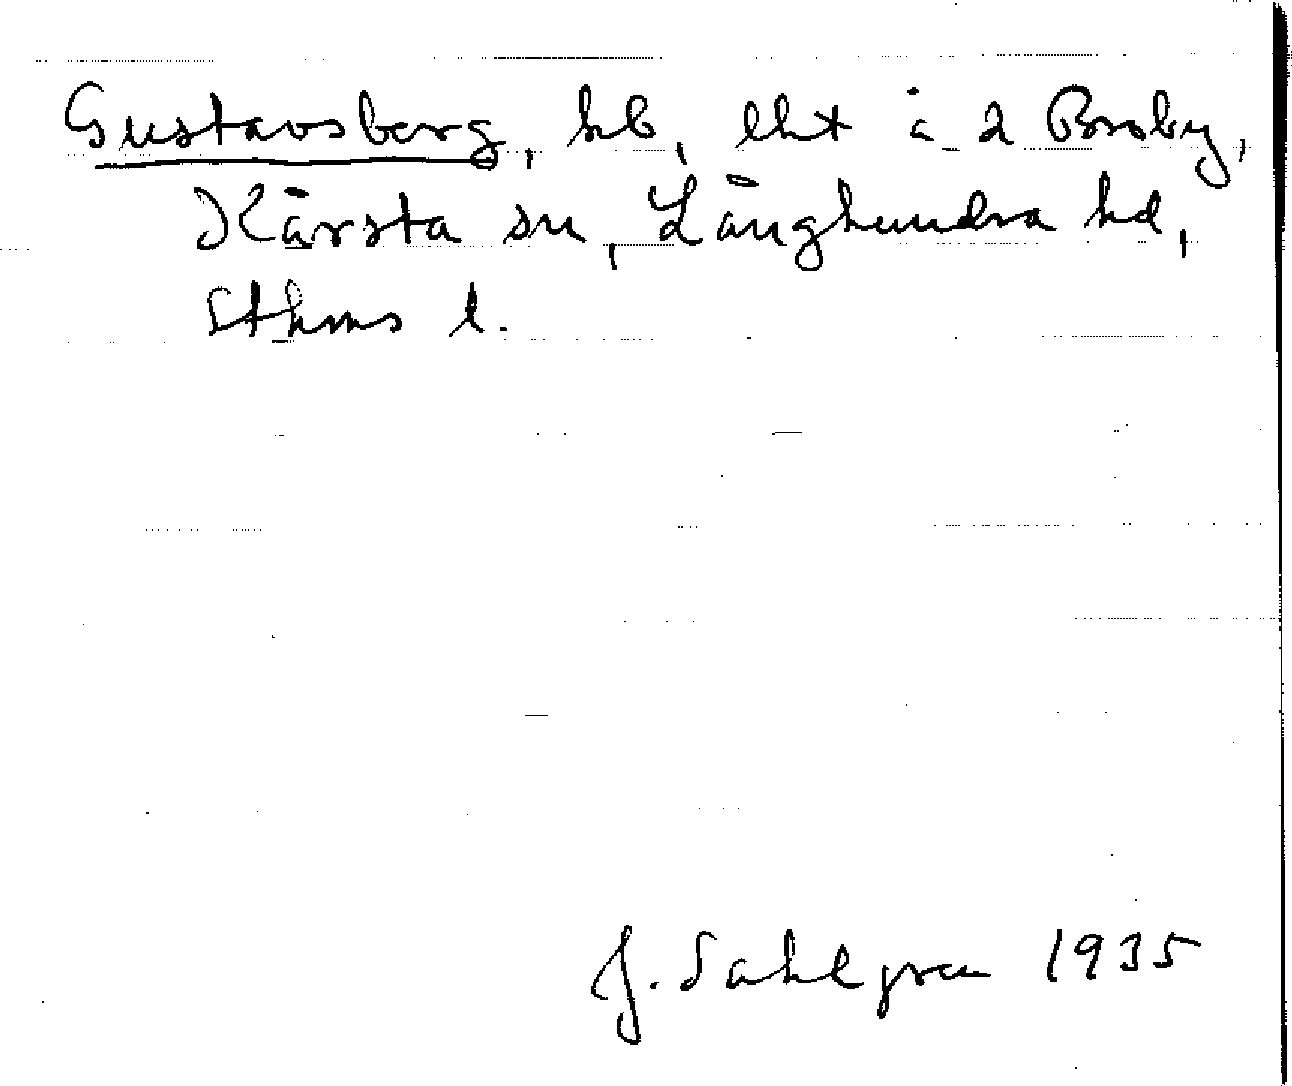 Gustavsberg, hb, lht å 2 Broby,
Kårsta sn, Långhundra hd,
Sthms l.
J. Sahlgren 1935